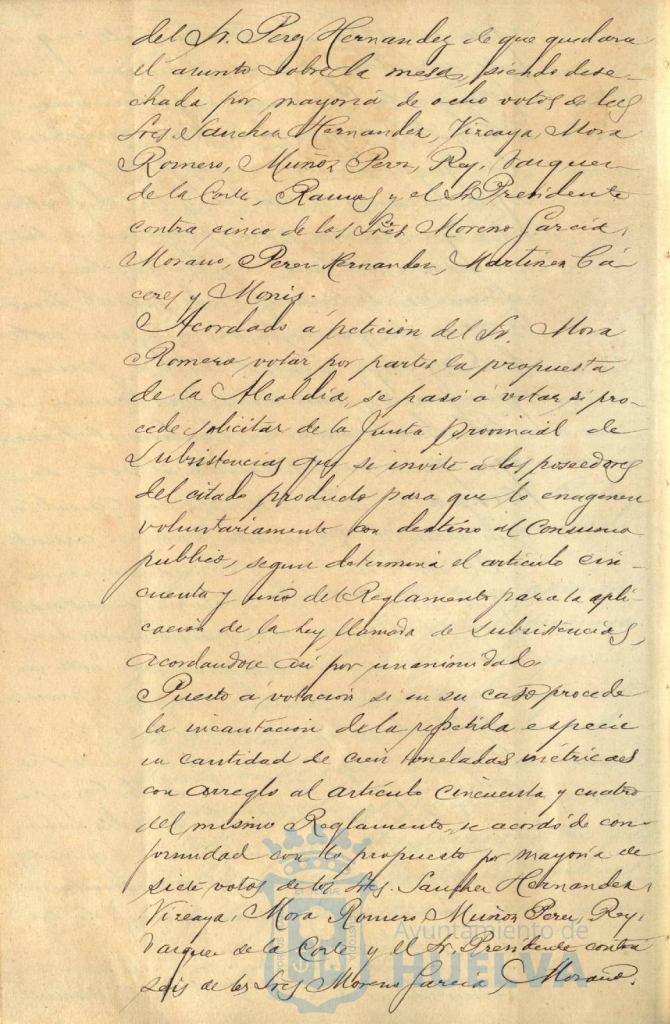 del Sr. Perez Hernandez de que quedara
el asunto sobre la mesa, siendo dese-
chada por mayoria de ocho votos de los
Sres. Sanchez Hernandez, Vizcaya, Mora
Romero, Muñoz Perez, Rey, Vazquez
de la Corte, Ramos y el Sr. Presidente
contra cinco de los Sres. Moreno Garcia,
Morano, Perez Hernandez, Martinez Cá-
ceres y Monis.
Acordado á peticion del Sr. Mora
Romero votar por partes la propuesta
de la Alcaldia, se pasó á votar, si pro-
cede solicitar de la Junta provincial de
Subsistencias que se invite á los poseedores
del citado producto para que lo enagenen
voluntariamente con destino al consumo
público, segun determina el articulo cin-
cuenta y uno del Reglamento para la apli-
cacion de la ley llamada de Subsistencias,
acordandose asi por unanimidad.
Puesto á votacion si en su caso procede
la incautacion de la repetida especie
en cantidad de cien toneladas métricas
con arreglo al articulo cincuenta y cuatro
del mismo Reglamento, se acordó de con-
formidad con lo propuesto por mayoria de
siete votos de los Sres. Sanchez Hernandez,
Vizcaya, Mora Romero, Muñoz Perez, Rey,
Vazquez de la Corte y el Sr. Presidente contra
seis de los Sres. Moreno Garcia, Morano,
Ayuntamiento de
HUELVA